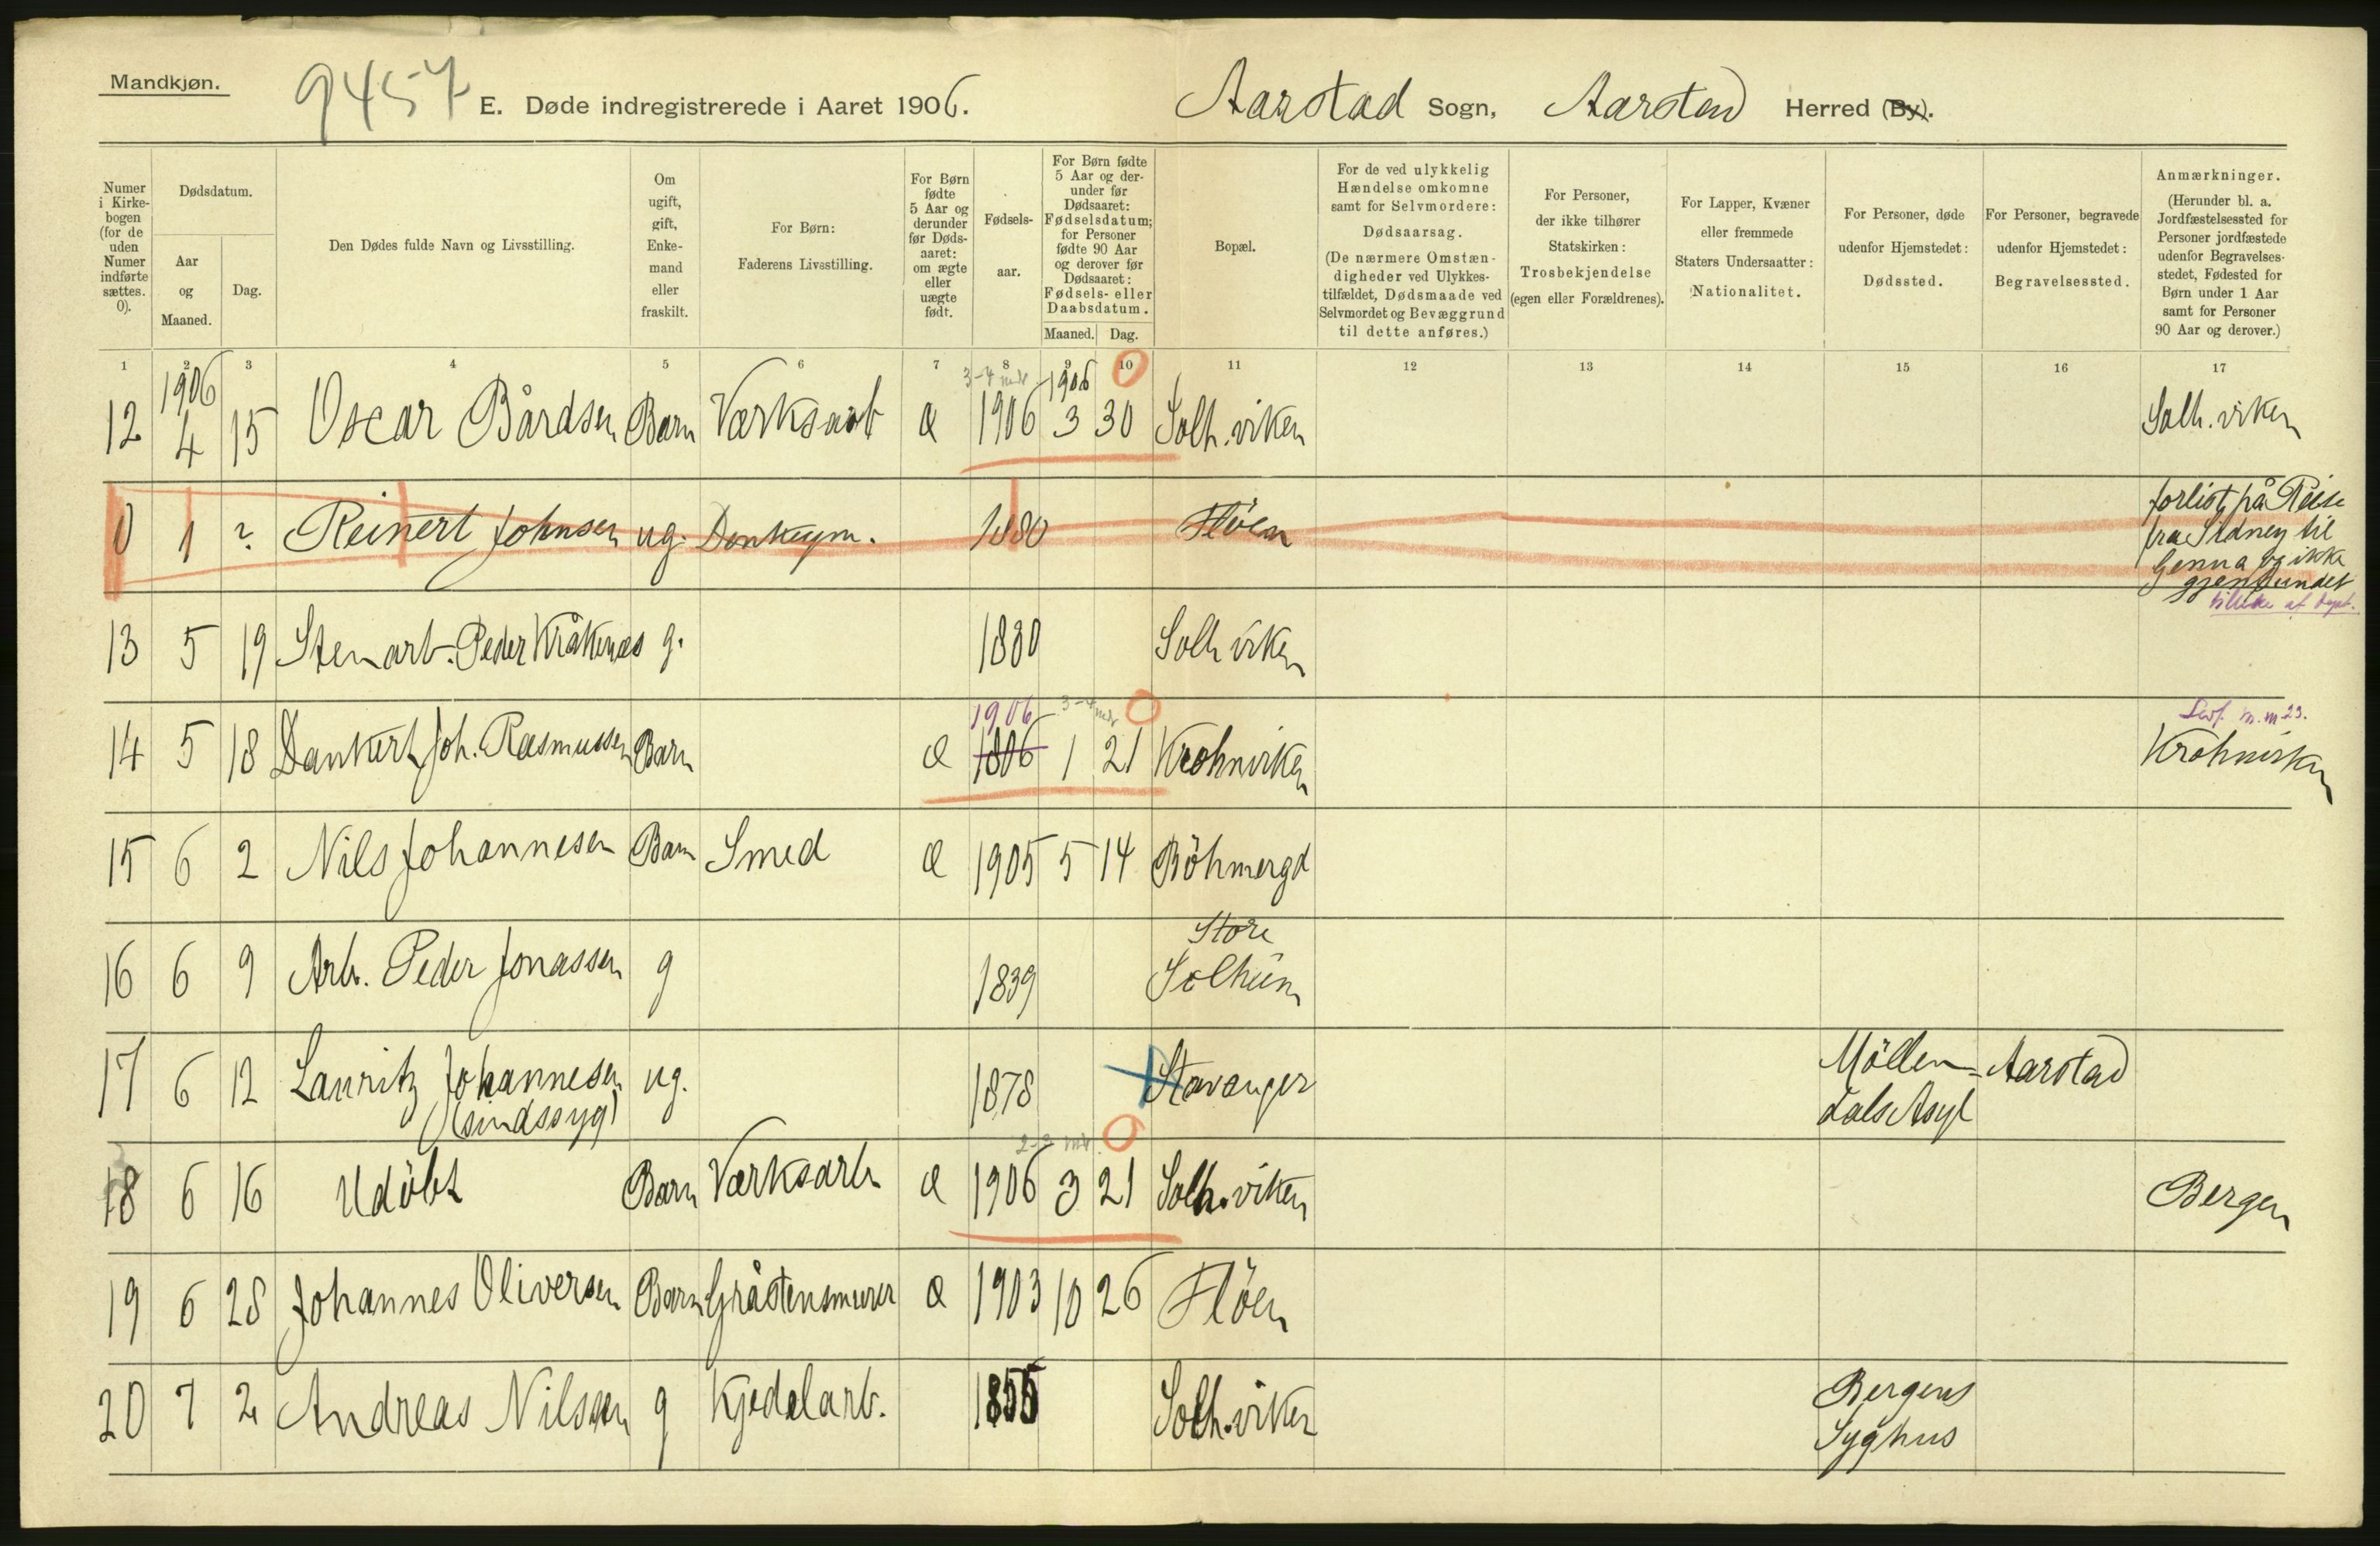 Mandkjøn.
9457
E. Døde indregistrerede i Aaret 1906.
Aarstad Sogn, Aarstad Herred (By).
Numer i Kirkebogen (for de uden Numer indførte sættes. 0).
Dødsdatum.
Aar og Maaned.
Dag.
Den Dødes fulde Navn og Livsstilling.
Om ugift, gift, Enkemand eller fraskilt.
For Børn: Faderens Livsstilling.
For Børn fødte 5 Aar og derunder før Dødsaaret: om ægte eller uægte født.
Fødselsaar.
For Børn fødte 5 Aar og derunder før Dødsaaret: Fødselsdatum; for Personer fødte 90 Aar og derover før Dødsaaret: Fødsels- eller Daabsdatum.
Maaned. Dag.
Bopæl.
For de ved ulykkelig Hændelse omkomne samt for Selvmordere: Dødsaarsag. (De nærmere Omstændigheder ved Ulykkestilfældet, Dødsmaade ved Selvmordet og Bevæggrund til dette anføres.)
For Personer, der ikke tilhører Statskirken: Trosbekjendelse (egen eller Forældrenes).
For Lapper, Kvæner eller fremmede Staters Undersaatter: Nationalitet.
For Personer, døde udenfor Hjemstedet: Dødssted.
For Personer, begravede udenfor Hjemstedet: Begravelsessted.
Anmærkninger. (Herunder bl. a. Jordfæstelsessted for Personer jordfæstede udenfor Begravelsesstedet, Fødested for Børn under 1 Aar samt for Personer 90 Aar og derover.)
1 2 3 4 5 6 7 8 9 10 11 12 13 14 15 16 17
1906 3-4 mdr 1906 0
12 4 15 Oscar Bårdsen Barn Værksarb Æ 1906 3 30 Solh.viken Solh.viken
0 1 ? Reinert Johnsen ug. Donkeym. 1880 Flöen forlist på Reise
fra Sidney til
Genua og ikke
gjenfundet
13 5 19 Stenarb. Peder Kråkenes g. 1830 Solh viken
1906 3-4 mdr 0
14 5 18 Dankert Joh. Rasmussen Barn Æ 1806 1 21 Krohnviken Krohnviken
15 6 2 Nils Johannesen Barn Smed Æ 1905 5 14 Böhmergd
Store
16 6 9 Arb. Peder Jonassen g 1839 Solheim
17 6 12 Lauritz Johannesen ug. 1878 Stavanger Möllen- Aarstad
(sindssyg) dals Asyl
2-3 mdr 0
18 6 16 Udöbt Barn Værksarb Æ 1906 3 21 Solh.viken Bergen
19 6 28 Johannes Oliversen Barn Gråstensmurer Æ 1903 10 26 Flöen
20 7 2 Andreas Nilssen g Kjedelarb. 1855 Solh.viken Bergens
Syghus